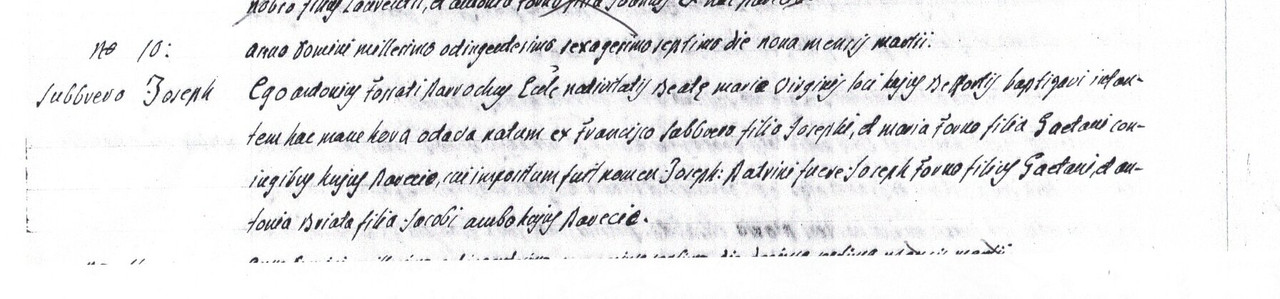 no 10:
anno Domini millesimo octingentesimo sexagesimo septimo die nona mensis martii.
Subbrero Joseph
Ego antonius Fossati Parrochus Ecclē nativitatis Beatę mariæ Virginis loci hujus baptizavi infan-
tem hac mane hora octava natum ex Francisco Subbrero filio Josephi, et maria Forno filia Gaetani con-
iugibus hujus Parœciæ, cui impositum fuit nomen Joseph: Patrini fuere Joseph Forno filius Gaetani, et an-
tonia Briata filia Jacobi ambo hujus Parœciæ.